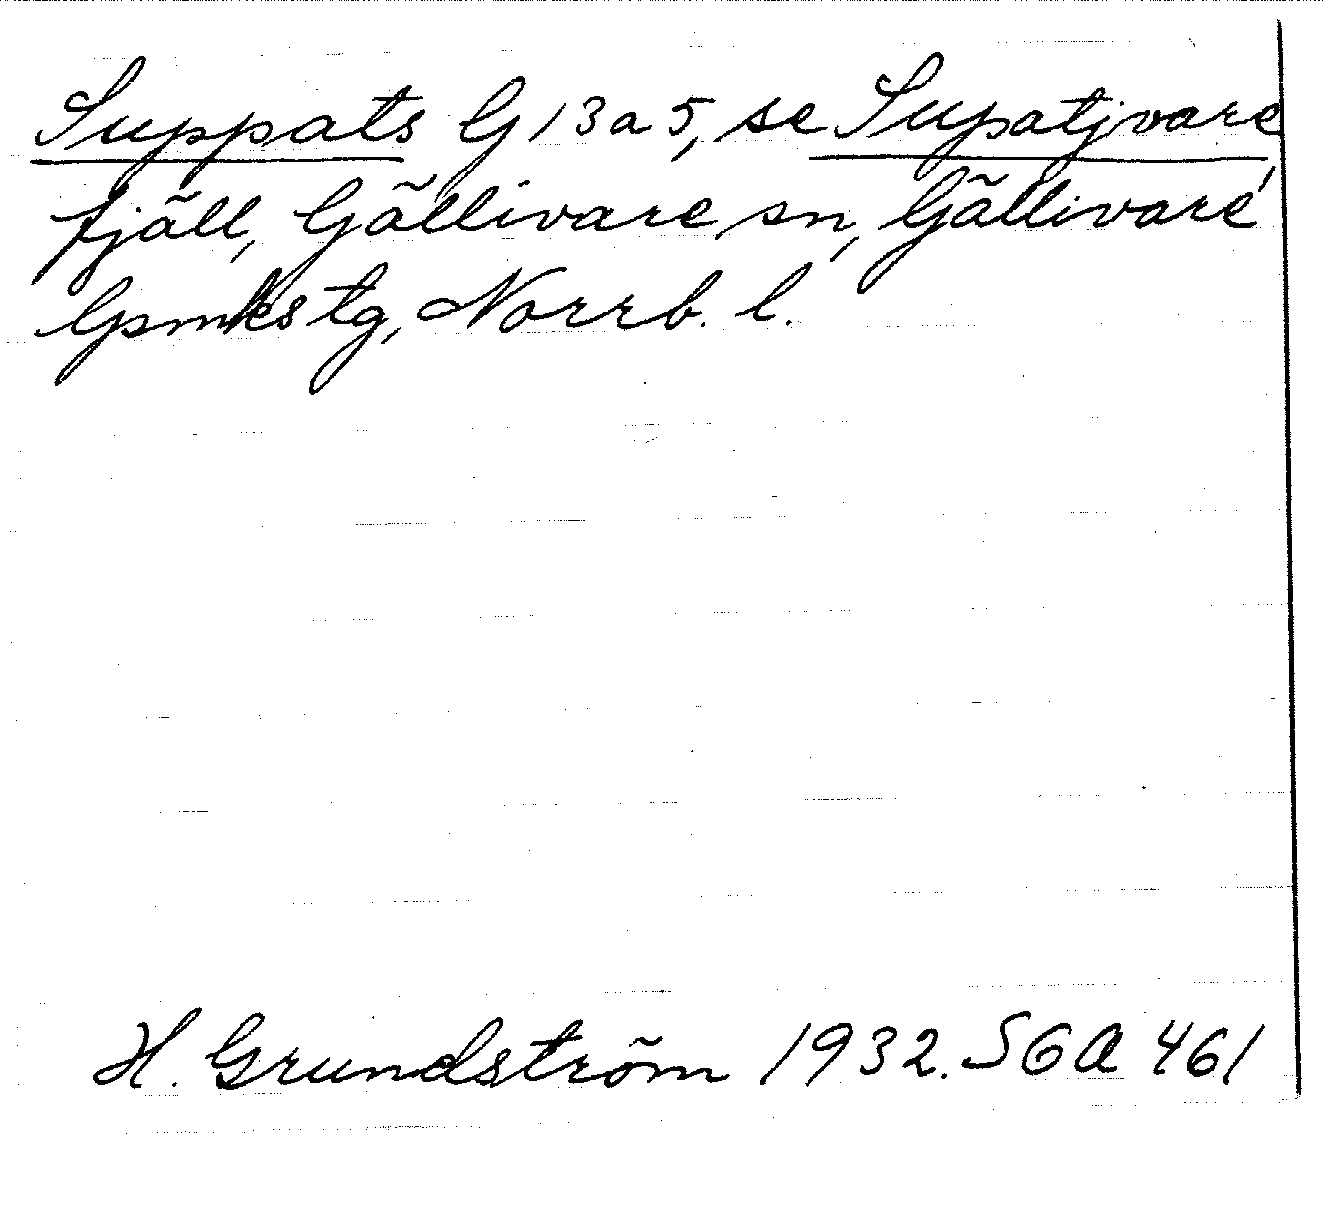 Suppats G 13 a 5, se Supatjvare
fjäll, Gällivare sn, Gällivare
Gpmks tg, Norrb. l.
H. Grundström 1932. SGA 461